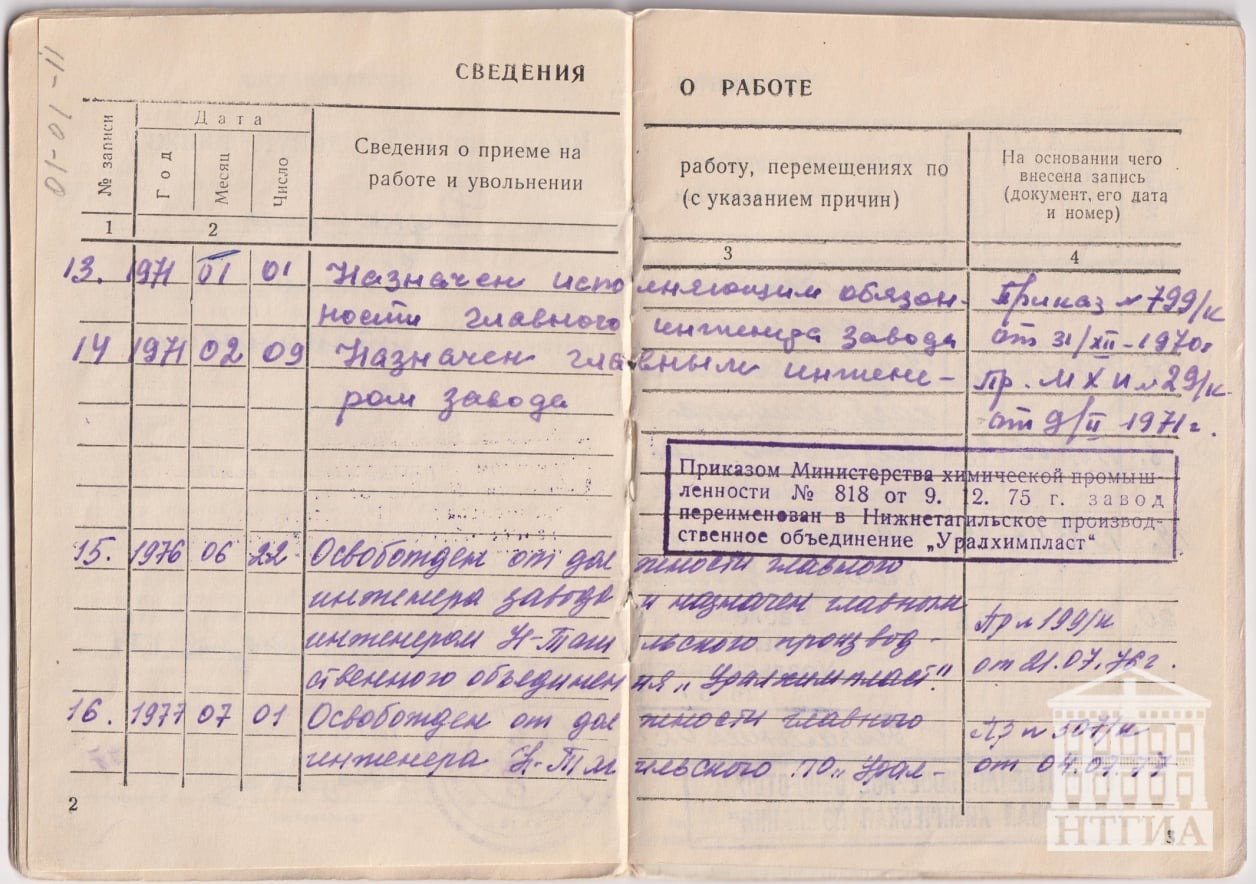 01-01-11
СВЕДЕНИЯ О РАБОТЕ
№ записи
Дата
Год
Месяц
Число
Сведения о приеме на работу, перемещениях по
работе и увольнении (с указанием причин)
На основании чего
внесена запись
(документ, его дата
и номер)
1 2 3 4
13. 1971 01 01 Назначен исполняющим обязан- Приказ № 799/к
ности главного инженера завода от 31/XII-1970г
14 1971 02 09 Назначен главным инжене- Пр. МХП №29/к
ром завода от 9/II 1971г.
Приказом Министерства химической промыш-
ленности № 818 от 9. 12. 75 г. завод
переименован в Нижнетагильское производ-
ственное объединение „Уралхимпласт“
15. 1976 06 22 Освобожден от должности главного
инженера завода и назначен главным
инженером Н-Тагильского производ- Пр №199/к
ственного объединения „Уралхимпласт". от 21.07.76г.
16. 1977 07 01 Освобожден от должности главного №307/к
инженера Н-Тагильского ПО „Урал- от 04.07.77
2
3
НТГИА